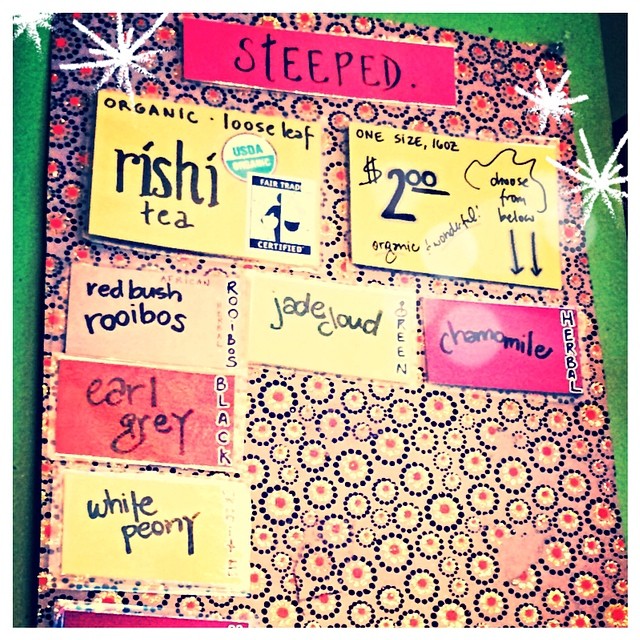 STEEPED.
ORGANIC · loose leaf
rishi
tea
USDA
ORGANIC
FAIR TRADE
CERTIFIED
ONE SIZE, 16OZ
$2.00
organic + wonderful!
choose
from
below
AFRICAN
HERBAL
redbush
rooibos
ROOIBOS
jade cloud
GREEN
chamomile
HERBAL
earl
grey
BLACK
white
peony
WHITE